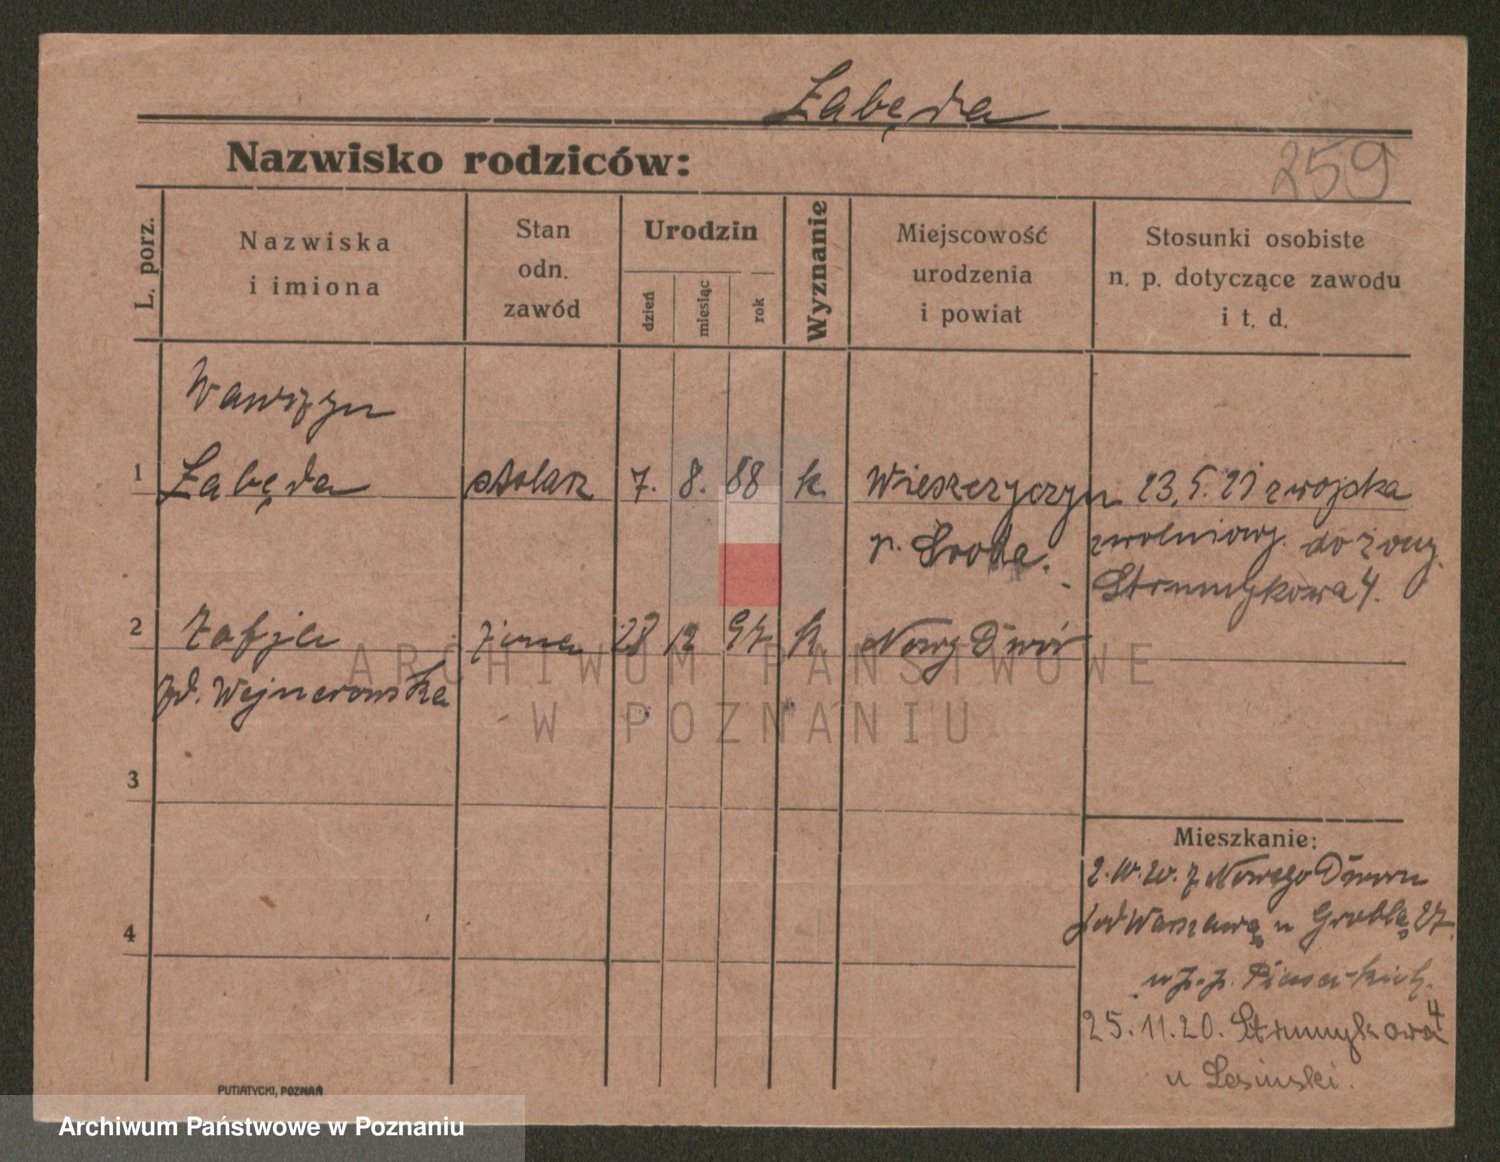 Łabęda
Nazwisko rodziców:
259
L. porz.
Nazwiska
i imiona
Stan
odn.
zawód
Urodzin
dzień
miesiąc
rok
Wyznanie
Miejscowość
urodzenia
i powiat
Stosunki osobiste
n. p. dotyczące zawodu
i t. d.
Wawrzyn
1 Łabęda stolarz 7. 8. 88 k. Wieszczyczyn 23.5.21 z wojska
p. Środa. zwolniony. do żony.
Strumykowa 4.
2 Zofja żona 28 12 97 k. Nowy Dwór
zd. Wejnerowska
ARCHIWUM PAŃSTWOWE
W POZNANIU
3
Mieszkanie:
2.10.20. z Nowego Dworu
4 pod Warszawą n Groblę 27.
u p.p.
25.11.20. Strumykowa 4
u Lesinski.
PUTIATYCKI, POZNAŃ
Archiwum Państwowe w Poznaniu